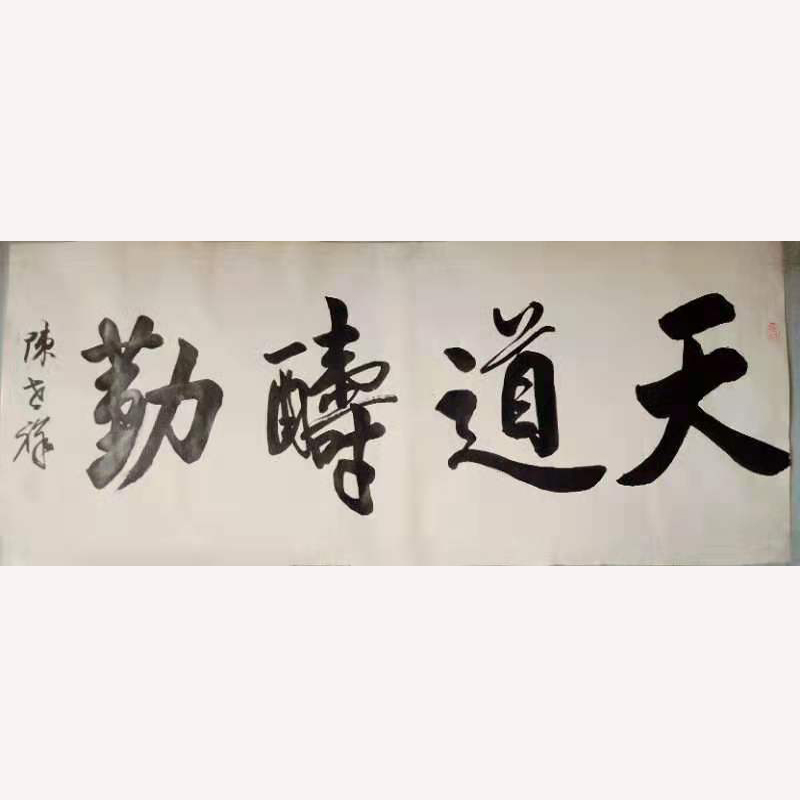 天道醻勤
陳世祥